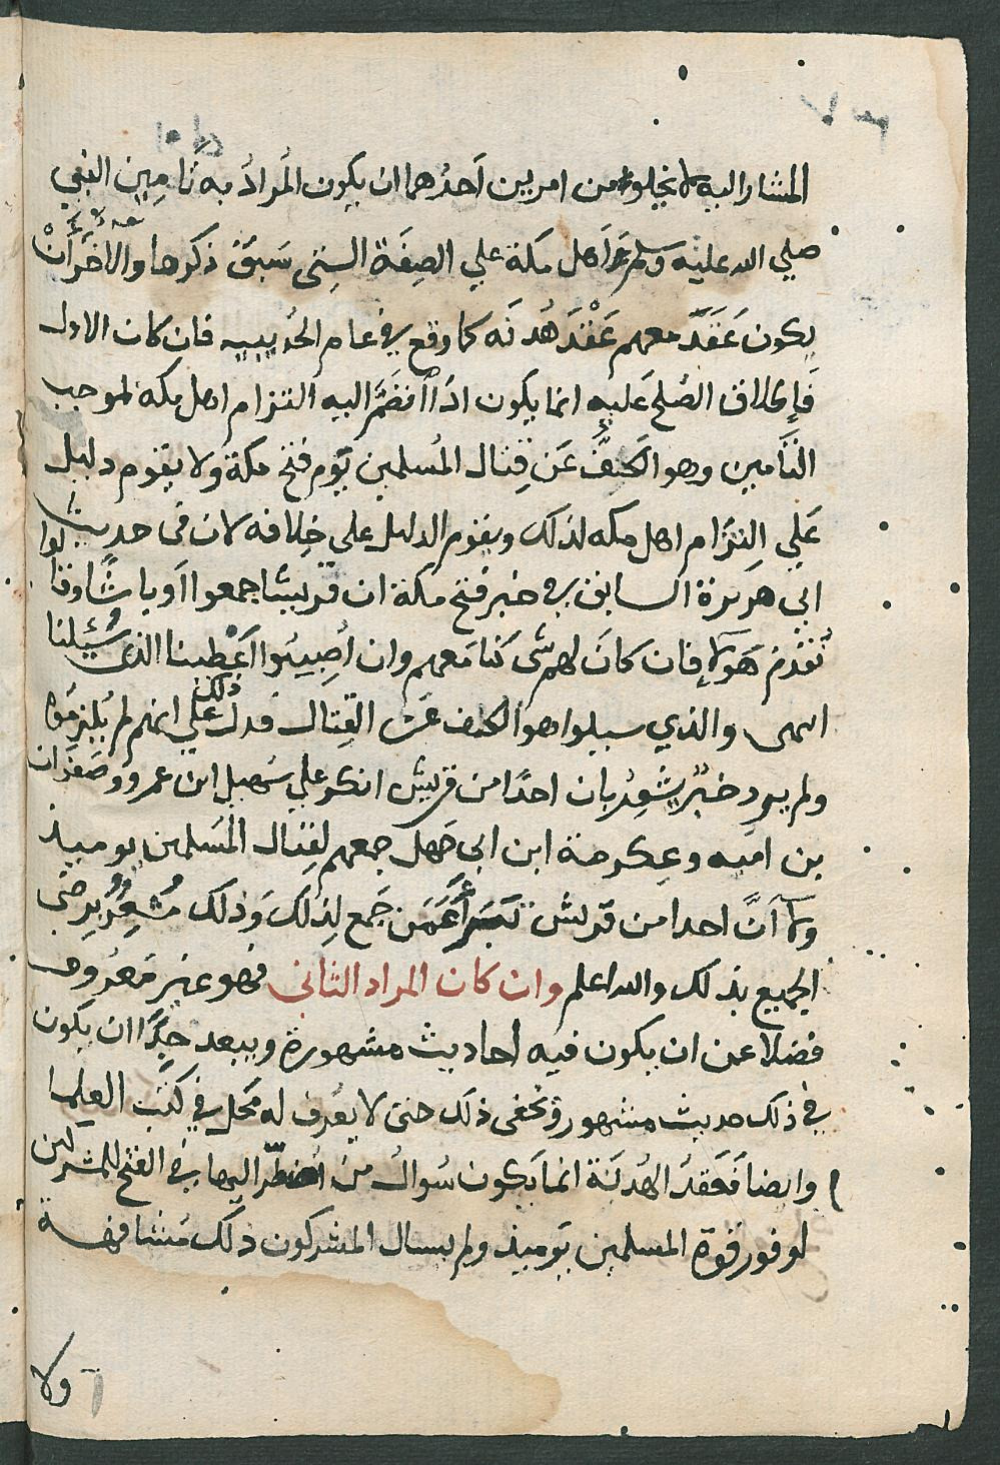 المشار اليه لا يخلو من امرين اَحدُهما ان يكون المُرادُ به تامِين النبي
صلي الله عليه وسلم اَهل مكة علي الصِفَة التِي سَبَقَ ذكرها والاخَر اَنْ
يكون عَقَدَ معهم عَقْدَ هُدنَه كما وقع في عام الحُديبيه فان كان الاول
فَإطلاق الصُلح عَليهِ انما يكون اذا انضَمَّ اليه التزام اهل مكه لموجب
التَامين وهو الكَفُّ عَن قِتال المُسلمين يَوم فتح مكة ولا يقوم دليل
عَلي التِزَام اهل مكه لذلك ويقوم الدليل علي خِلافه لان في حديث
ابي هريرة السابق في خبر فتح مكة ان قريشا جمعوا اَوباشًا وقالوا
نُقدّم هَولاءِ فان كانَ لهم شى كنا مَعهم وان اُصِيبُوا اَعْطينا الذى سُئِلنا
انتهى والذي سيلوا هو الكف عَن القِتال فدل ذلك علي انهم لم يَلتزمُوه
ولم يرد خبرٌ يشْعِرُ بان احدًا من قريش انكر علي سُهيل ابن عمرو وصَفوَان
بن اميه وعِكرمة ابن ابي جَهل جمعهم لقِتال المُسلمين يوميذ
ولا اَنَّ احدا من قريش تَبَراَ عَمَن جَمع لِذلكَ وَذلك مُشعِرٌ بِرِضَى
الجميع بذلك والله اعلم وان كان المراد الثاني فهو غير مَعرُوف
فضلا عن ان يكون فيه احاديث مشهورة ويبعد جِدًا ان يكون
في ذلك حديث مشهور وَيخفى ذلك حتى لا يعْرف له مَحل في كتب العلما
وايضا فَعَقدُ الهُدنَة انما يَكون سُوالُ مَن اضطرّ اليها في الفتح للمشركين
لوفور قوة المسلمين يَوميذ ولم يسال المشركون ذلك مُشافهة
ولا